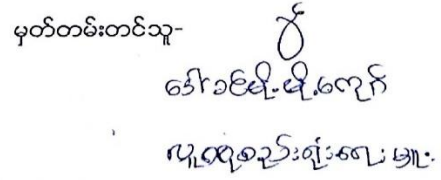 မှတ်တမ်းတင်သူ-
ဒေါ်ခင်မို့မို့ကျော်
လူထုစည်းရုံးရေးမှူး